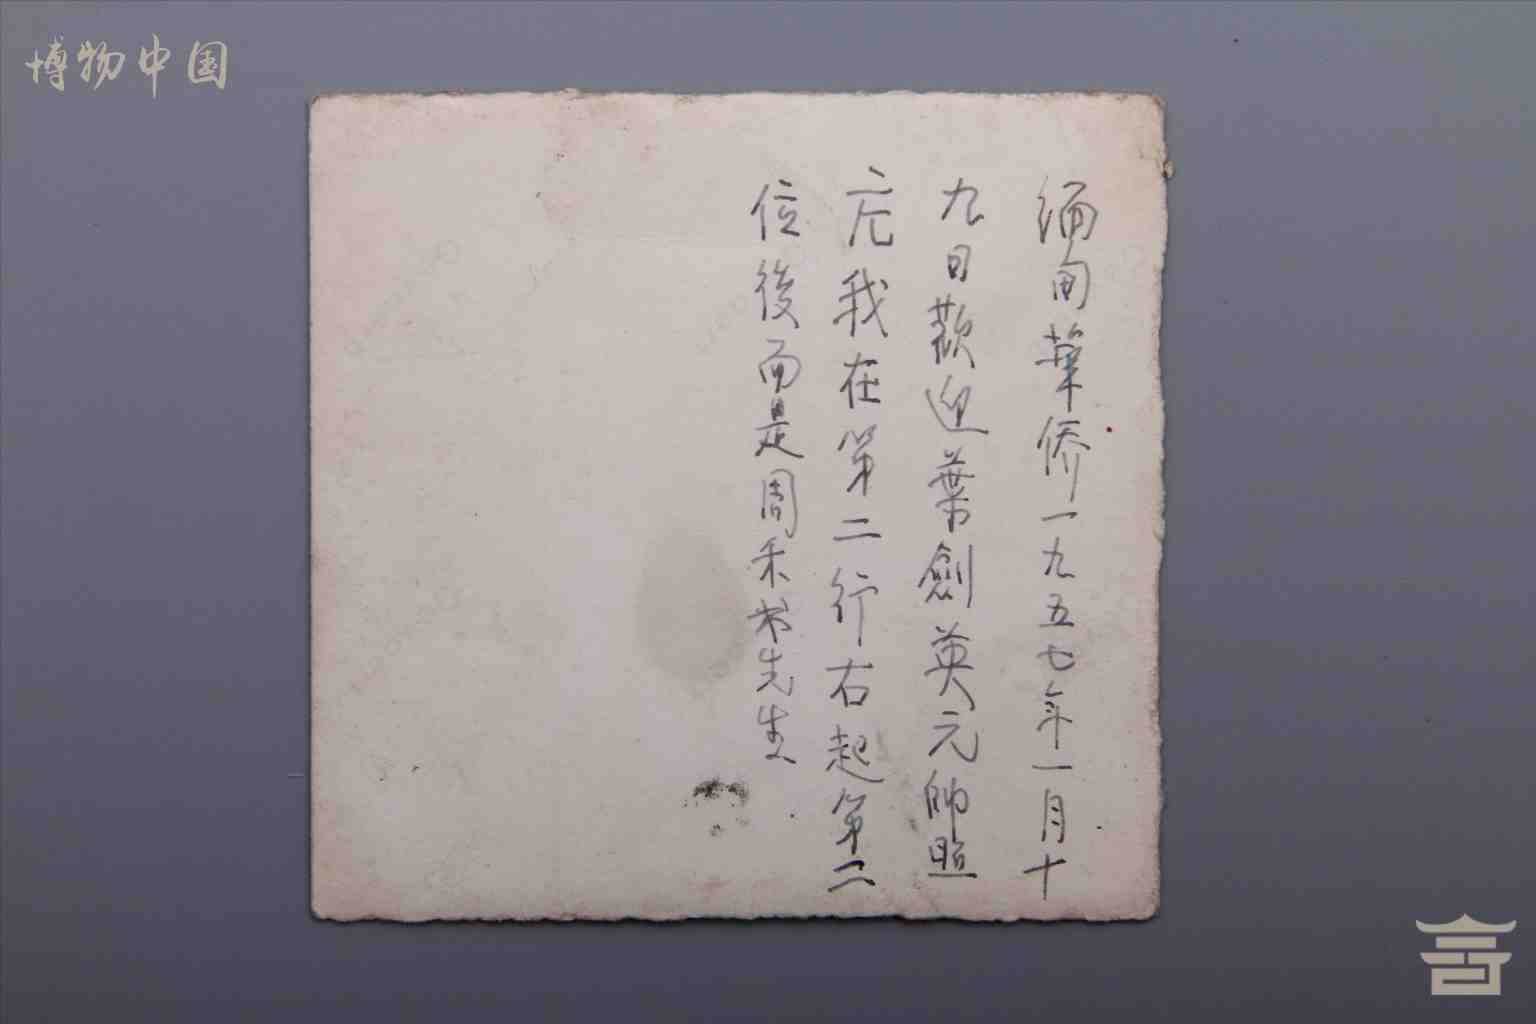 博物中国
缅甸華侨一九五七年一月十
九日歡迎葉劍英元帥照
我在第二行右起第二
位後面是周禾书先生